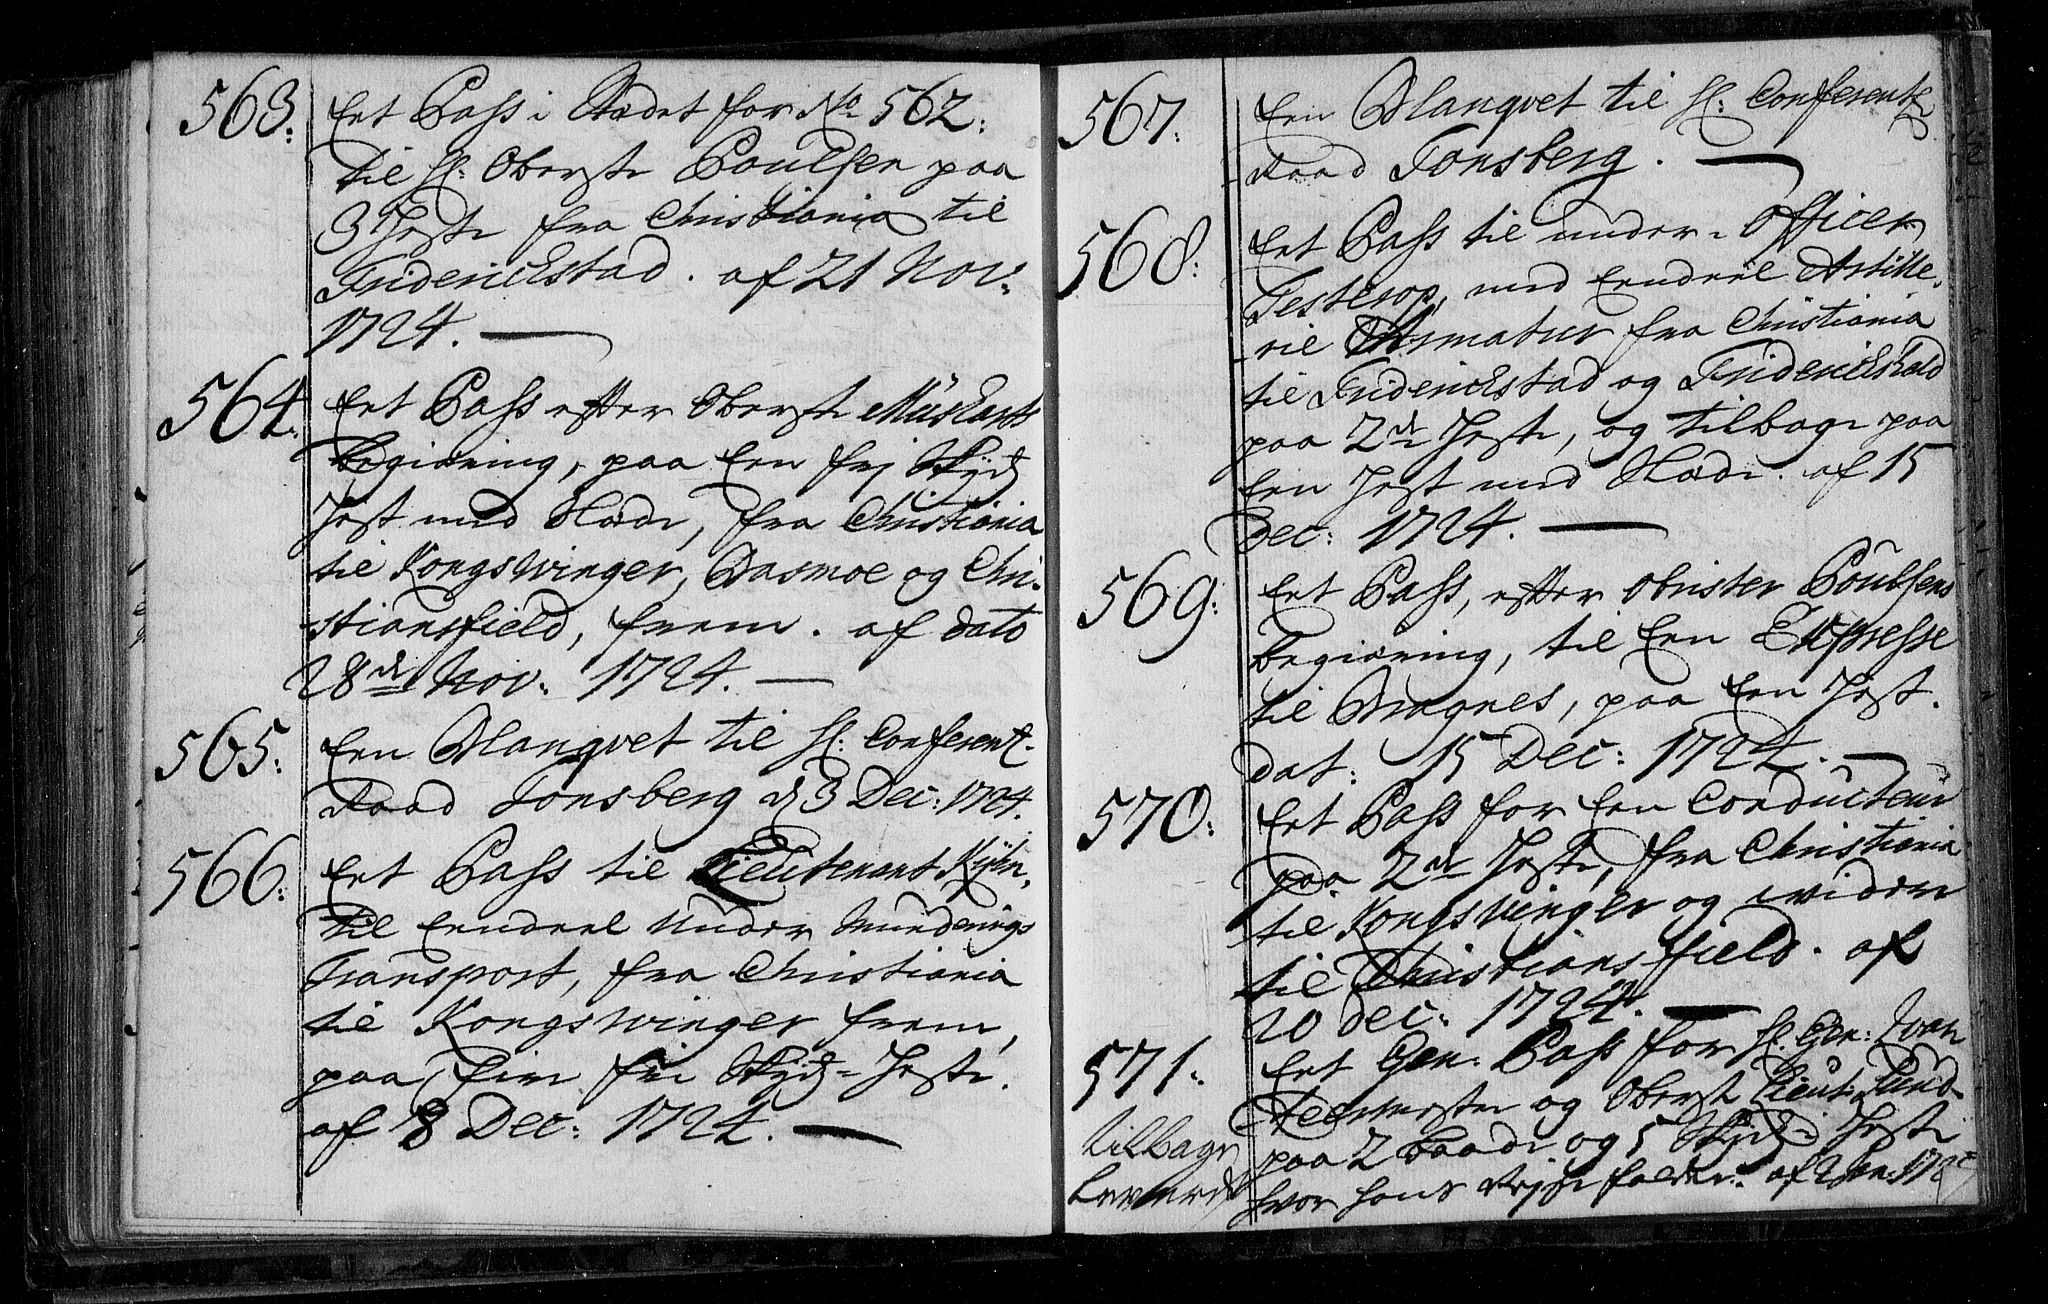 563. Eet Pass i Stædet for No 562.
til H: Oberste Poulsen paa
3 Heste fra Christiania til
Friderickstad. af 21 Nov:
1724.
564. Eet Pass efter Oberste
begiæring, paa Een frj Skyds
Hest med Slæde, fra Christiania
til Kongswinger, Basmoe og Chri-
stiansfield, frem. af dato
28de Nov. 1724.
565. Een Blanqvet til H: Conferentz-
Raad Tonsberg d 3 Dec: 1724.
566. Eet Pass til Lieutenant Kyhn,
til Eendeel Munderings
Transport, fra Christiania
til Kongswinger frem,
paa fire frie Skyds-Heste.
af 8 Dec: 1724.
567. Een Blanqvet til H: Conferentz
Raad Tonsberg.
568. Eet Pass til under-Officer
Testerop, med Eendeel Artille-
rie Armatur fra Christiania
til Friderickstad og Friderichshald
paa 2de Heste, og tilbage paa
Een Hest med Slæde. af 15
Dec: 1724.
569. Eet Pass, efter Obrister Poulsens
begiæring, til Een Expresse
til Bragnes, paa Een Hest.
dat: 15 Dec: 1724.
570. Eet Pass for Een Conducteur
paa 2de Heste, fra Christiania
til Kongswinger og widere
til Christiansfield. af
20 Dec: 1724.
571. Eet Gen. Pass for H. Gen:
og Oberst Lieut: Lund
tilbage
leveret
paa 2 Baade og 5 Skyds Heste
hvor hans Rejse falder. af